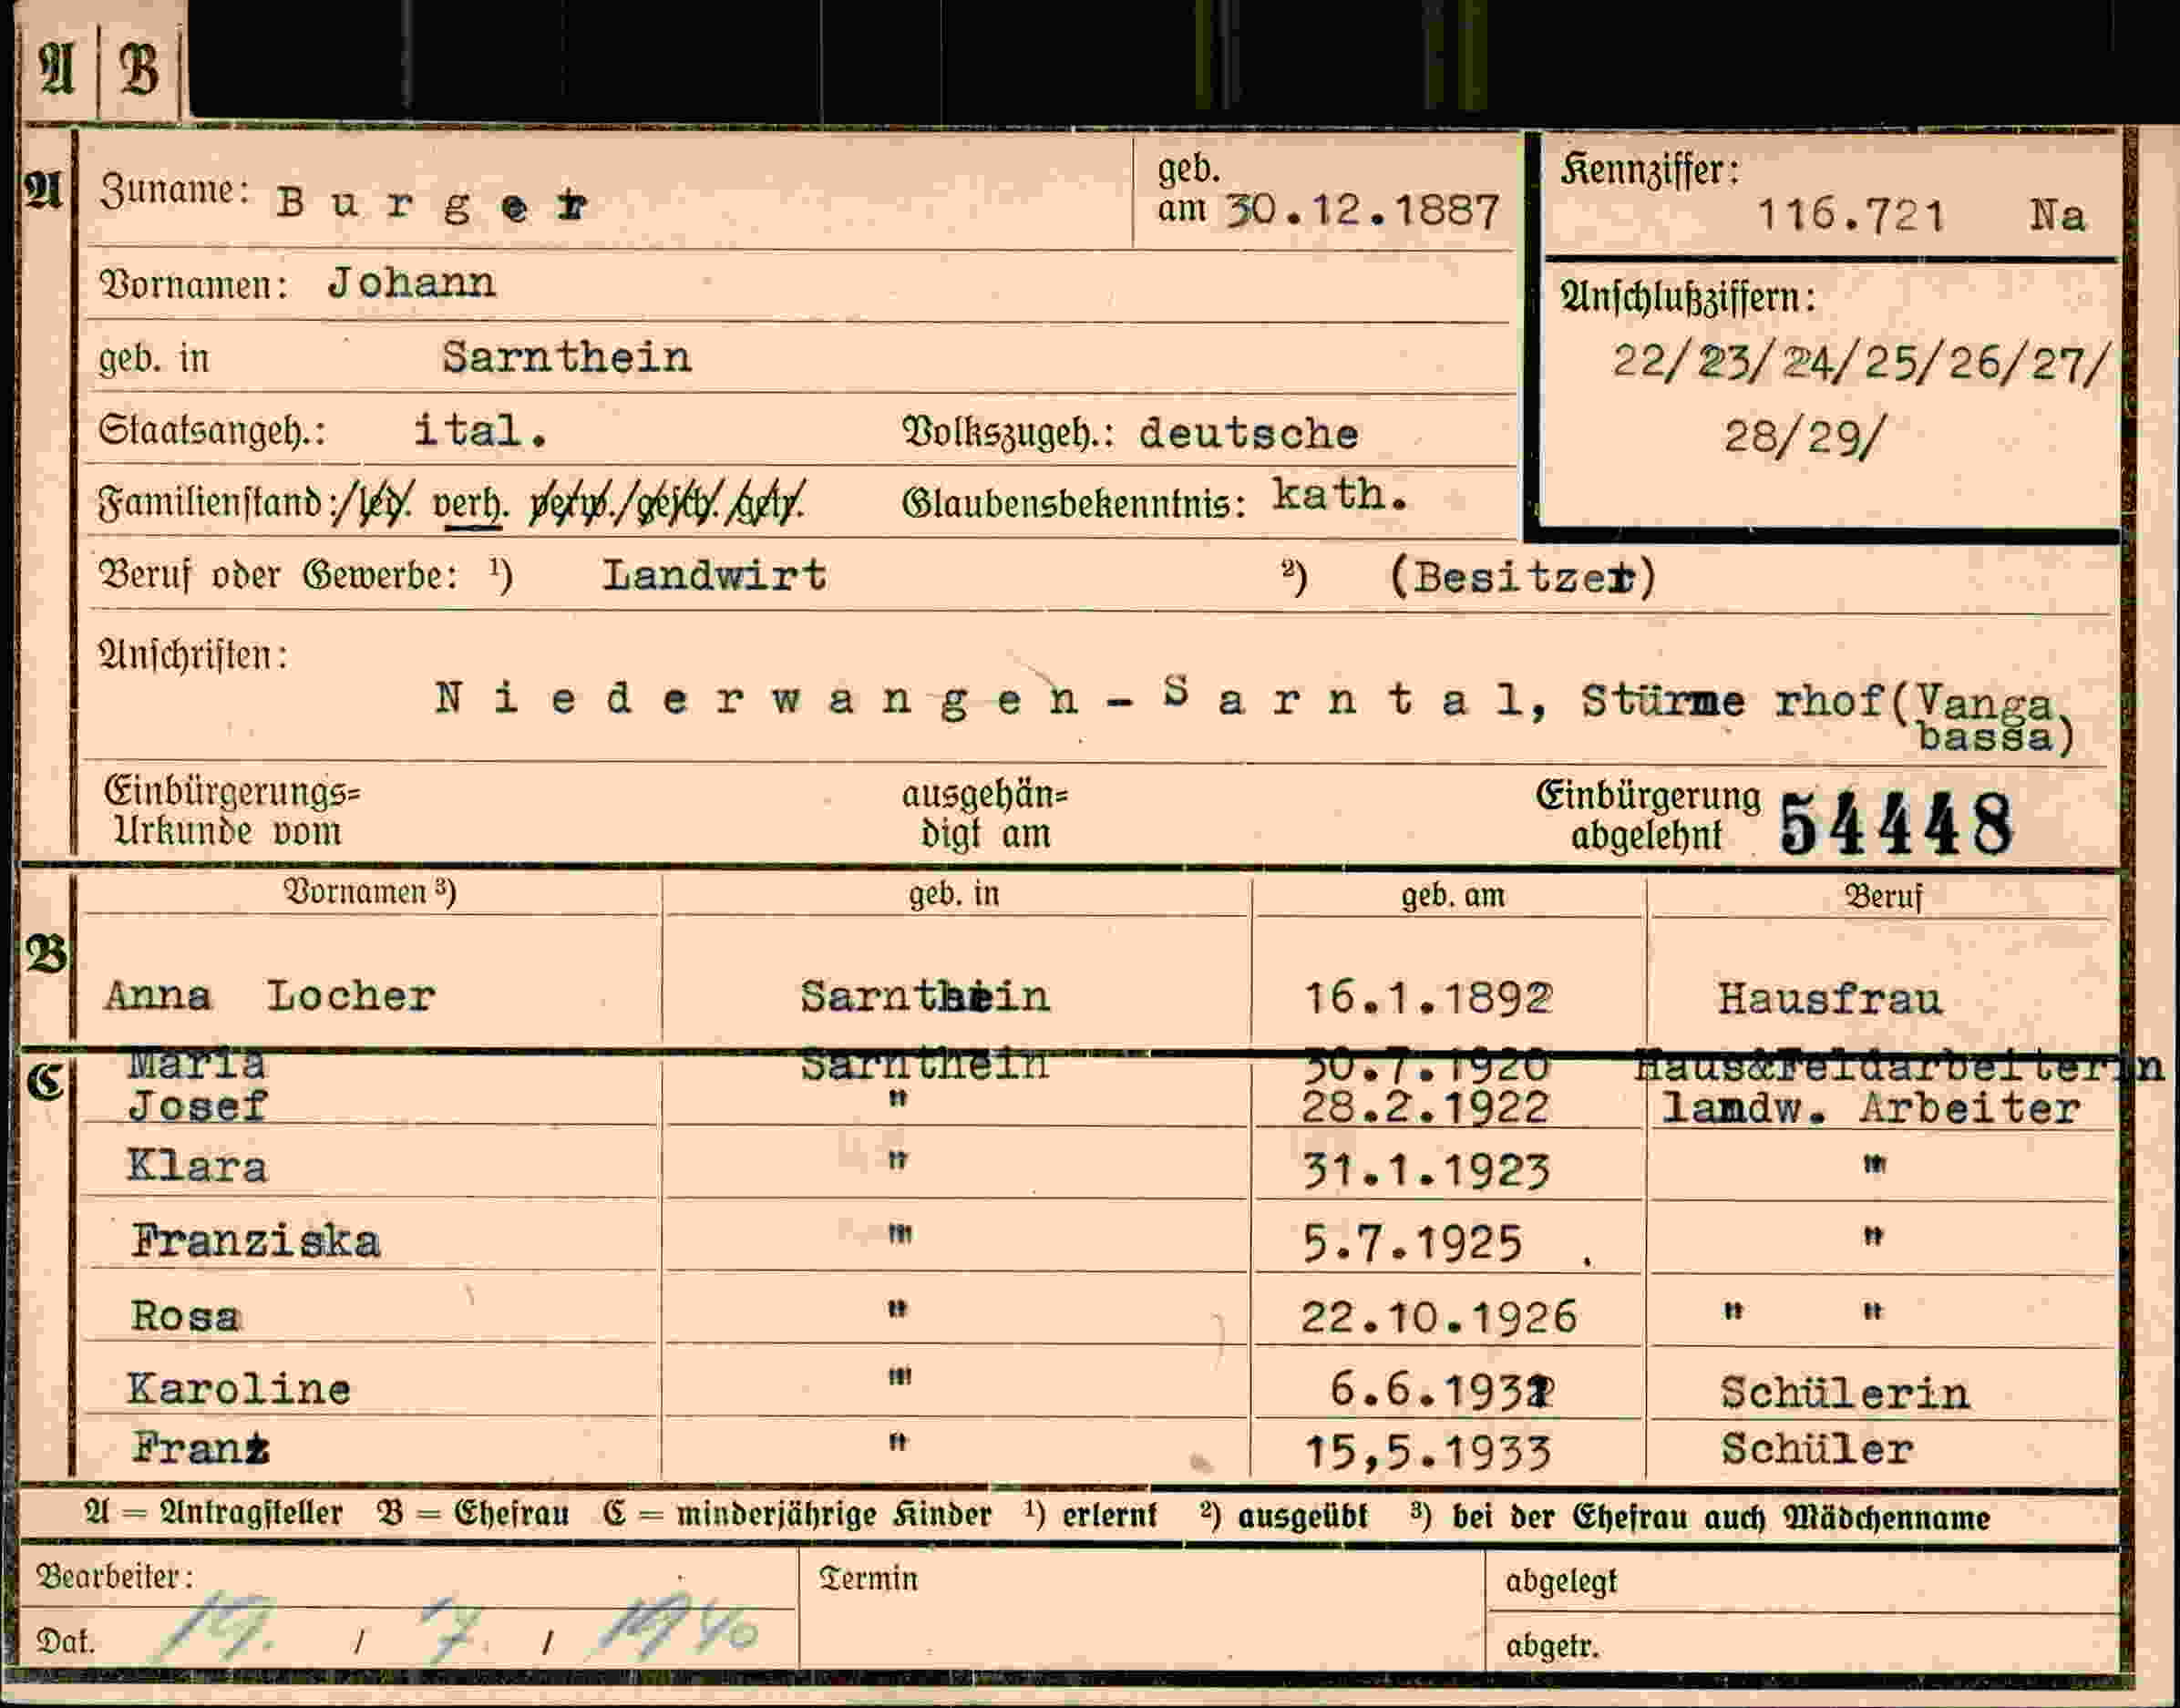 A B
A Zuname: Burger geb. am 30.12.1887 Kennziffer: 116.721 Na
Vornamen: Johann Anschlußziffern:
geb. in Sarnthein 22/23/24/25/26/27/
Staatsangeh.: ital. Volkszugeh.: deutsche 28/29/
Familienstand: / led. verh. verw. / gesch. / getr. Glaubensbekenntnis: kath.
Beruf oder Gewerbe: ¹) Landwirt ²) (Besitzer)
Anschriften:
Niederwangen-Sarntal, Stürme rhof(Vanga,
bassa)
Einbürgerungs= ausgehän= Einbürgerung 54448
Urkunde vom digt am abgelehnt
Vornamen ³) geb. in geb. am Beruf
B Anna Locher Sarnthein 16.1.1892 Hausfrau
C Maria Sarnthein 30.7.1920 Haus&Feldarbeiterin
Josef " 28.2.1922 landw. Arbeiter
Klara " 31.1.1923 "
Franziska " 5.7.1925 "
Rosa " 22.10.1926 " "
Karoline " 6.6.193 Schülerin
Franz " 15,5.1933 Schüler
A = Antragsteller B = Ehefrau C = minderjährige Kinder ¹) erlernt ²) ausgeübt ³) bei der Ehefrau auch Mädchenname
Bearbeiter: Termin abgelegt
Dat. 19. / 7. / 1940 abgetr.